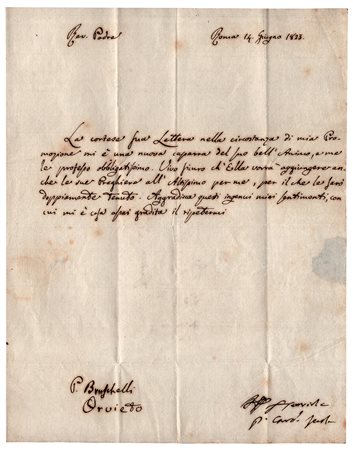 Rev. Padre
Roma 14. Giugno 1838.
La cortese sua Lettera nella circostanza di mia Pro-
mozione mi è una nuova caparra del suo bell'Animo, e me
le professo obbligatissimo. Vivo sicuro ch'Ella vorrà aggiungere an-
che le sue Preghiere all'Altissimo per me, per il che le sarò
doppiamente tenuto. Aggradisca questi ingenui miei sentimenti, con
cui mi è cosa assai gradita il ripetermi
P. Bruschelli
Orvieto
Card.